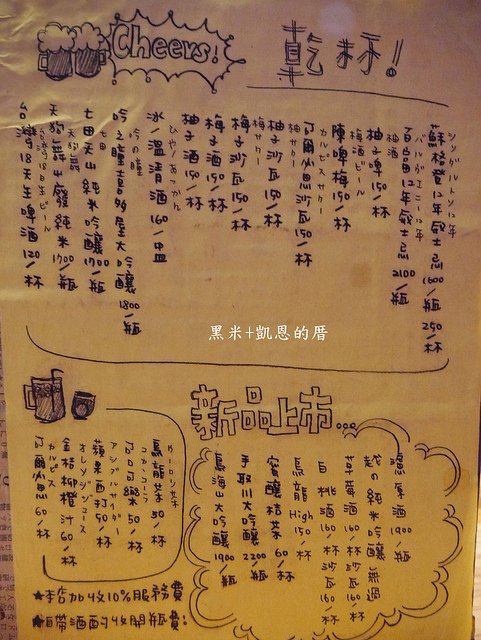 Cheers!
乾杯!
シングルトン12年
蘇格登12年威士忌 1600/瓶 250/杯
バルヴェニー12年
百富12年威士忌 2100/瓶
柚酒
柚子啤 150/杯
梅酒ビール
陳啤梅 150/杯
カルピスサワー
可爾必思沙瓦 150/杯
柚サワー
柚子沙瓦 150/杯
梅サワー
梅子沙瓦 150/杯
梅子酒 150/杯
柚子酒 150/杯
ひや/あつかん
冰/溫清酒 160/中皿
吟の瞳
吟之瞳 大吟釀 1800/瓶
七田
七田天山純米吟釀 1700/瓶
天狗舞
天狗舞山廢純米 1700/瓶
台湾18日生ビール
台灣18天生啤酒 120/杯
黑米+凱恩的厝
新品上市...
1900/瓶
純米吟釀
草莓酒 160/杯 沙瓦 160/杯
白桃酒 160/杯 沙瓦 160/杯
烏龍High 150/杯
家釀桔茶 60/杯
手取川大吟釀 2200/瓶
鳥海山大吟釀 1900/瓶
ウーロン茶
烏龍茶 50/杯
コカ・コーラ
可口可樂 50/杯
アップルサイダー
蘋果西打 50/杯
オレンジジュース
金桔柳橙汁 60/杯
カルピス
可爾必思 60/杯
★本店加收10%服務費
★自帶酒酌收開瓶費!